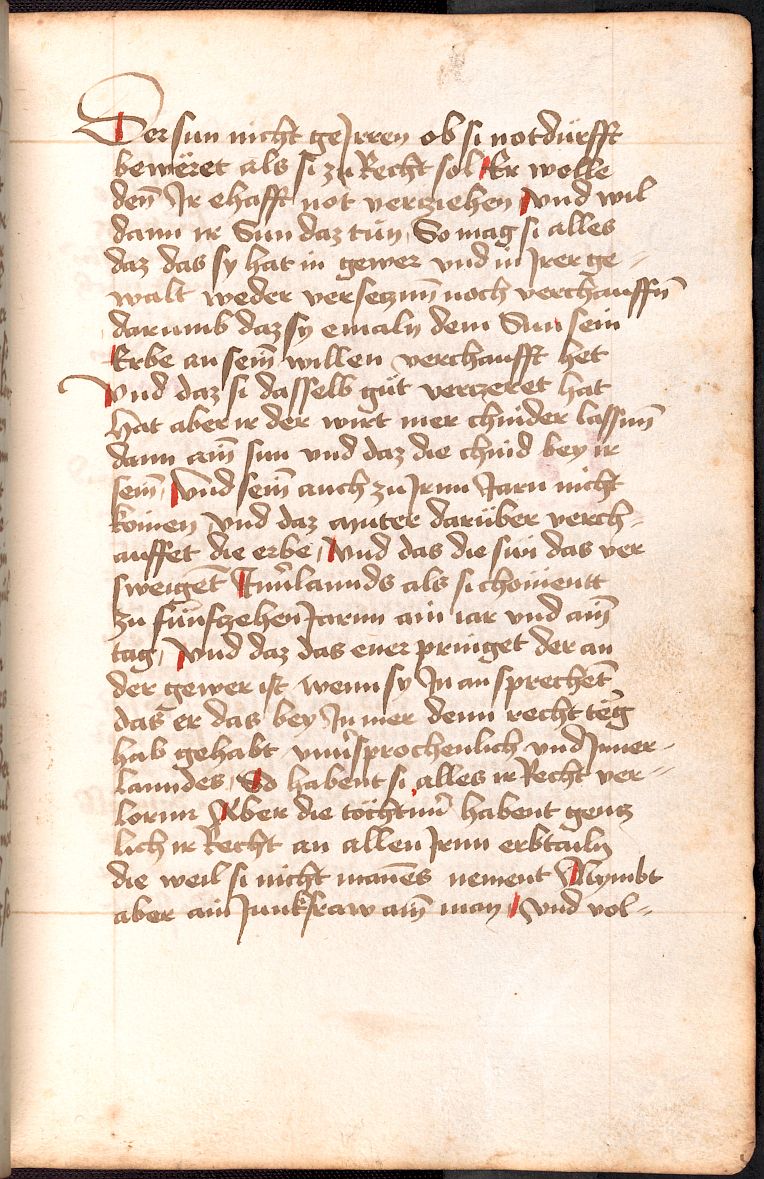 Der sun nicht geJrren ob si notdürfft
bewëret als si zu Recht sol Er wolle
deñ Jr ehafft not verziehen Vnd wil
dann ir Sun daz tün, So mag si alles
daz das sy hat in gewer vnd in Jrer ge-
walt weder verseczn̄ noch verchauffn̄
darumb daz sy emaln dem Sun sein
Erbe an sein̄ willen verchaufft het
Vnd daz si dasselb güt verczeret hat
Hat aber ir der wirt mer chinder lassn̄
dann ain̄ sun vnd daz die chind bey ir
sein̄, Vnd sein̄ auch zu Jrnn Jarn nicht
komen Vnd daz muter darüber verch-
auffet die erbe, Vnd das die sün das ver
sweigēt Jnn̄lannds als si choment
zu fünfczehen Jarnn ain iar vnd ain̄
tag, Vnd daz das ener pringet der an
der gewer ist wenn sy Jn an sprechēt
das er das bey Jn mer denn recht tëg
hab gehabt vnū̄sprochenlich vnd Jnner-
lanndes, So habent si alles ir Recht ver-
lornn Aber die töchtnn̄ habent gencz
lich ir Recht an allen Jrnn erbtailn
die weil si nicht man̄es nement Nymbt
aber ain Junkfraw ain̄ man Vnd vol-